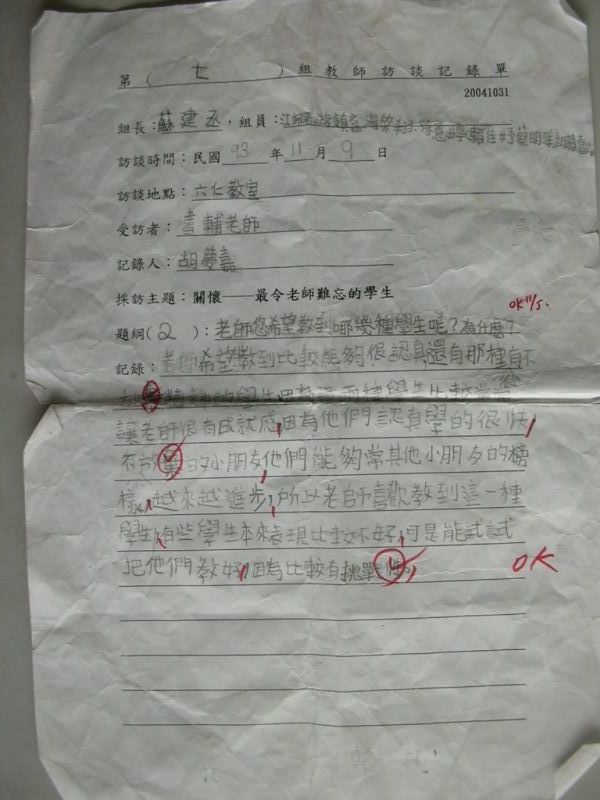 第（ 七 ）組教師訪談記錄單
20041031
組長：蘇建丞，組員：
訪談時間：民國 93 年 11 月 9 日
訪談地點：六仁教室
受訪者：書輔老師
記錄人：胡夢嘉
採訪主題：關懷——最令老師難忘的學生
OK 11/5.
題綱（2）：老師您希望教到哪幾種學生呢？為什麼？
記錄：老師希望教到比較能夠很認真還有那種有不
精神的學生因為這兩種學生比較常會
讓老師很有成就感，因為他們認真學的很快，
不放棄的小朋友，他們能夠常其他小朋友的榜
樣，越來越進步，所以老師喜歡教到這一種
學生，有些學生本來表現比較不好，可是能試試
把他們教好，因為比較有挑戰性。
OK